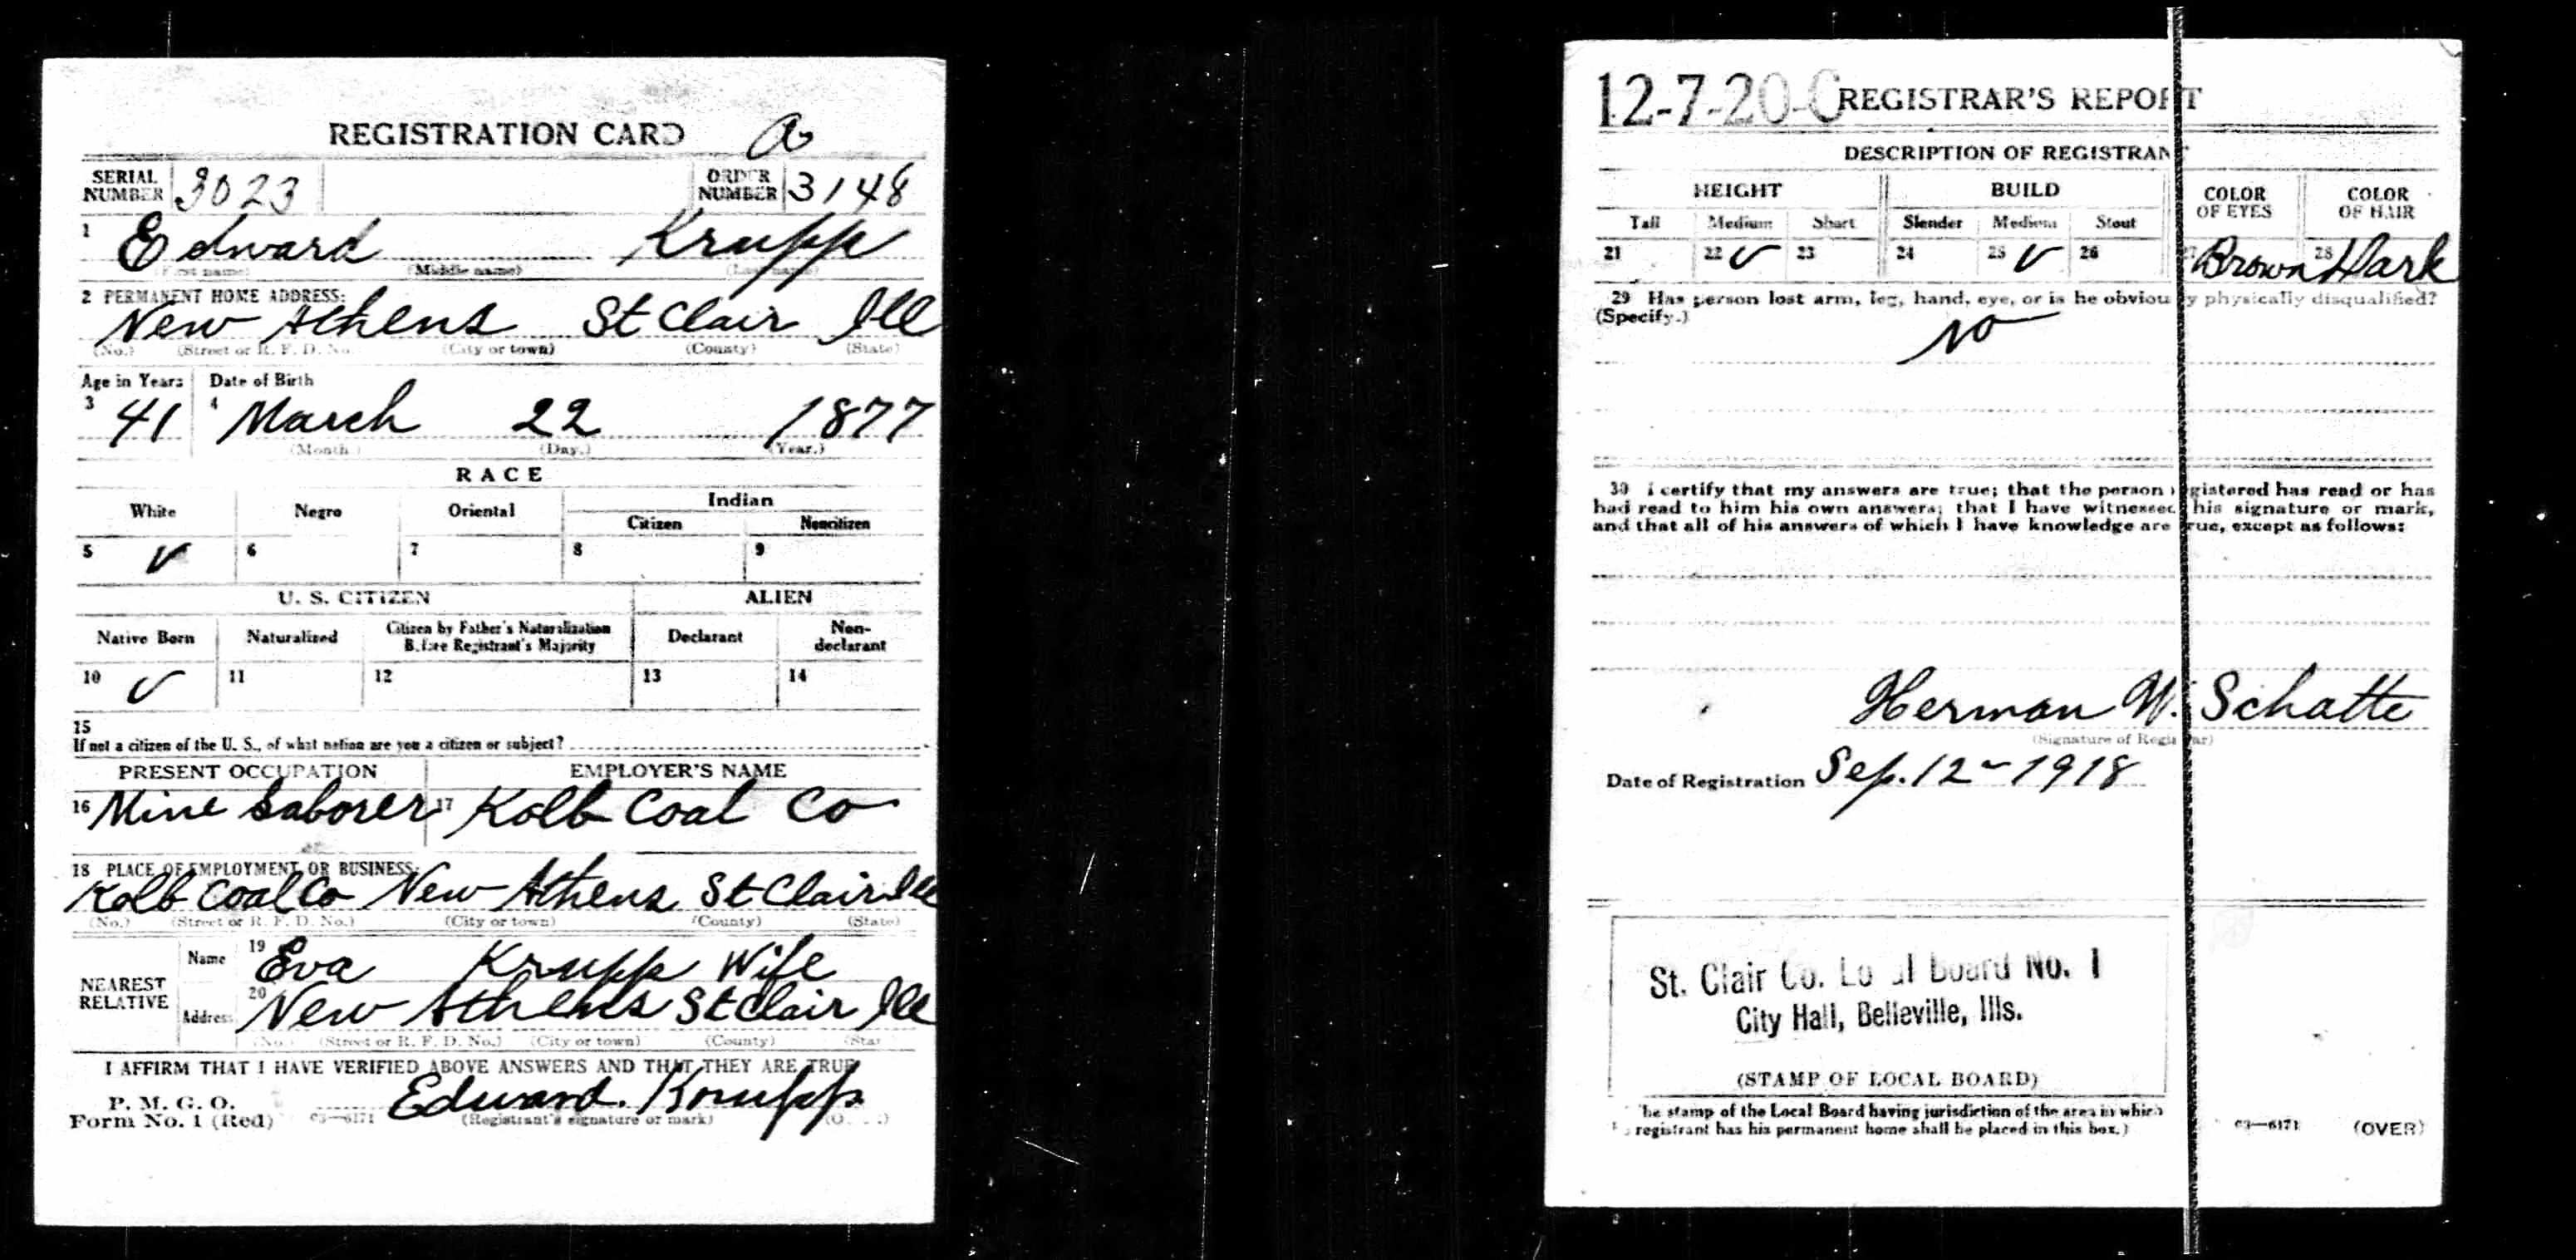 REGISTRATION CARD a
SERIAL NUMBER 3023 ORDER NUMBER 3148
1 Edward Krupp
(First name) (Middle name) (Last name)
2 PERMANENT HOME ADDRESS:
New Athens St Clair Ill
(No.) (Street or R. F. D. No.) (City or town) (County) (State)
Age in Years Date of Birth
3 41 4 March 22 1877
(Month.) (Day.) (Year.)
RACE
White Negro Oriental Indian
Citizen Noncitizen
5 ✓ 6 7 8 9
U. S. CITIZEN ALIEN
Native Born Naturalized Citizen by Father's Naturalization Before Registrant's Majority Declarant Non-declarant
10 ✓ 11 12 13 14
15
If not a citizen of the U. S., of what nation are you a citizen or subject?
PRESENT OCCUPATION EMPLOYER'S NAME
16 Mine Laborer 17 Kolb Coal Co
18 PLACE OF EMPLOYMENT OR BUSINESS:
Kolb Coal Co New Athens St Clair Ill
(No.) (Street or R. F. D. No.) (City or town) (County) (State)
NEAREST RELATIVE
Name 19 Eva Krupp Wife
Address 20 New Athens St Clair Ill
(No.) (Street or R. F. D. No.) (City or town) (County) (Stat
I AFFIRM THAT I HAVE VERIFIED ABOVE ANSWERS AND THAT THEY ARE TRUE
P. M. G. O.
Form No. 1 (Red) 03—6171 Edward Krupp
(Registrant's signature or mark)
12-7-20-C REGISTRAR'S REPORT
DESCRIPTION OF REGISTRANT
HEIGHT BUILD COLOR OF EYES COLOR OF HAIR
Tall Medium Short Slender Medium Stout
21 22 ✓ 23 24 25 ✓ 26 27 Brown 28 Dark
29 Has person lost arm, leg, hand, eye, or is he obviously physically disqualified?
(Specify.) No
30 I certify that my answers are true; that the person registered has read or has
had read to him his own answers; that I have witnessed his signature or mark,
and that all of his answers of which I have knowledge are true, except as follows:
Herman W. Schatte
(Signature of Registrar)
Date of Registration Sep. 12 - 1918
St. Clair Co. Local Board No. 1
City Hall, Belleville, Ills.
(STAMP OF LOCAL BOARD)
he stamp of the Local Board having jurisdiction of the area in which
registrant has his permanent home shall be placed in this box.)
03—6171 (OVER)